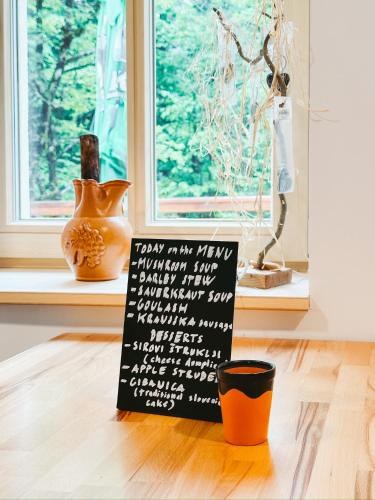 TODAY on the MENU
- MUSHROOM SOUP
- BARLEY STEW
- SAUERKRAUT SOUP
- GOULASH
- KRANJSKA sausage
DESSERTS
- SIROVI ŠTRUKLJI
(cheese dumplin
- APPLE STRUDE
- GIBANICA
(traditional slovenia
cake)